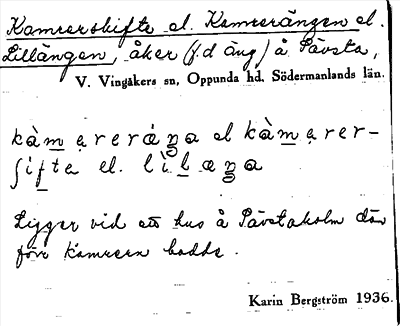 Kamrerskifte el. Kamrerängen el.
Lillängen, åker (f.d äng) å Sävsta,
V. Vingåkers sn, Oppunda hd. Södermanlands län.
kàm̲ạreráŋa el kàm̲ạrer-
ʃif̲ta el. lìl̲æŋa
Ligger vid ett hus å Sävstaholm där
förr kamrern bodde.
Karin Bergström 1936.